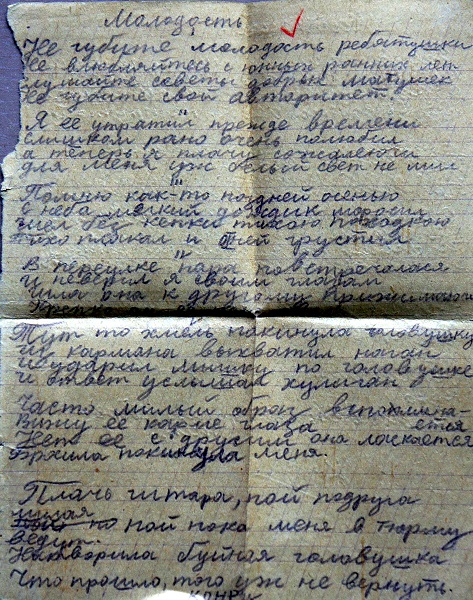 Молодость
Не губите молодость ребятушки
Не влюбляйтесь с юных ранних лет
слушайте советы добрых матушек
Не губите свой авторитет.
II
Я ее утратил прежде времени
слишком рано очень полюбил
а теперь я плачу сожалеючи
для меня уж белый свет не мил
III
Помню как-то поздней осенью
с неба мелкий дождик моросил
шел без кепки тихою походкою
тихо плакал и о ней грустил
IV
В переулке пара повстречалася
и неверил я своим глазам
шла она к другому прижималась
Крепко
Тут то хмель накинула головушку
из кармана выхватил наган
и ударил милку по головушке
и ответ услышал хулиган
Часто милый образ вспомина
ется
Вижу ее карие глаза
Нет ее с другим она ласкается
Бросила покинула меня.
Плачь гитара, пой подруга
милая
по пой пока меня в тюрму
ведут.
Натворила буйная головушка
Что прошло, того уж не вернуть.